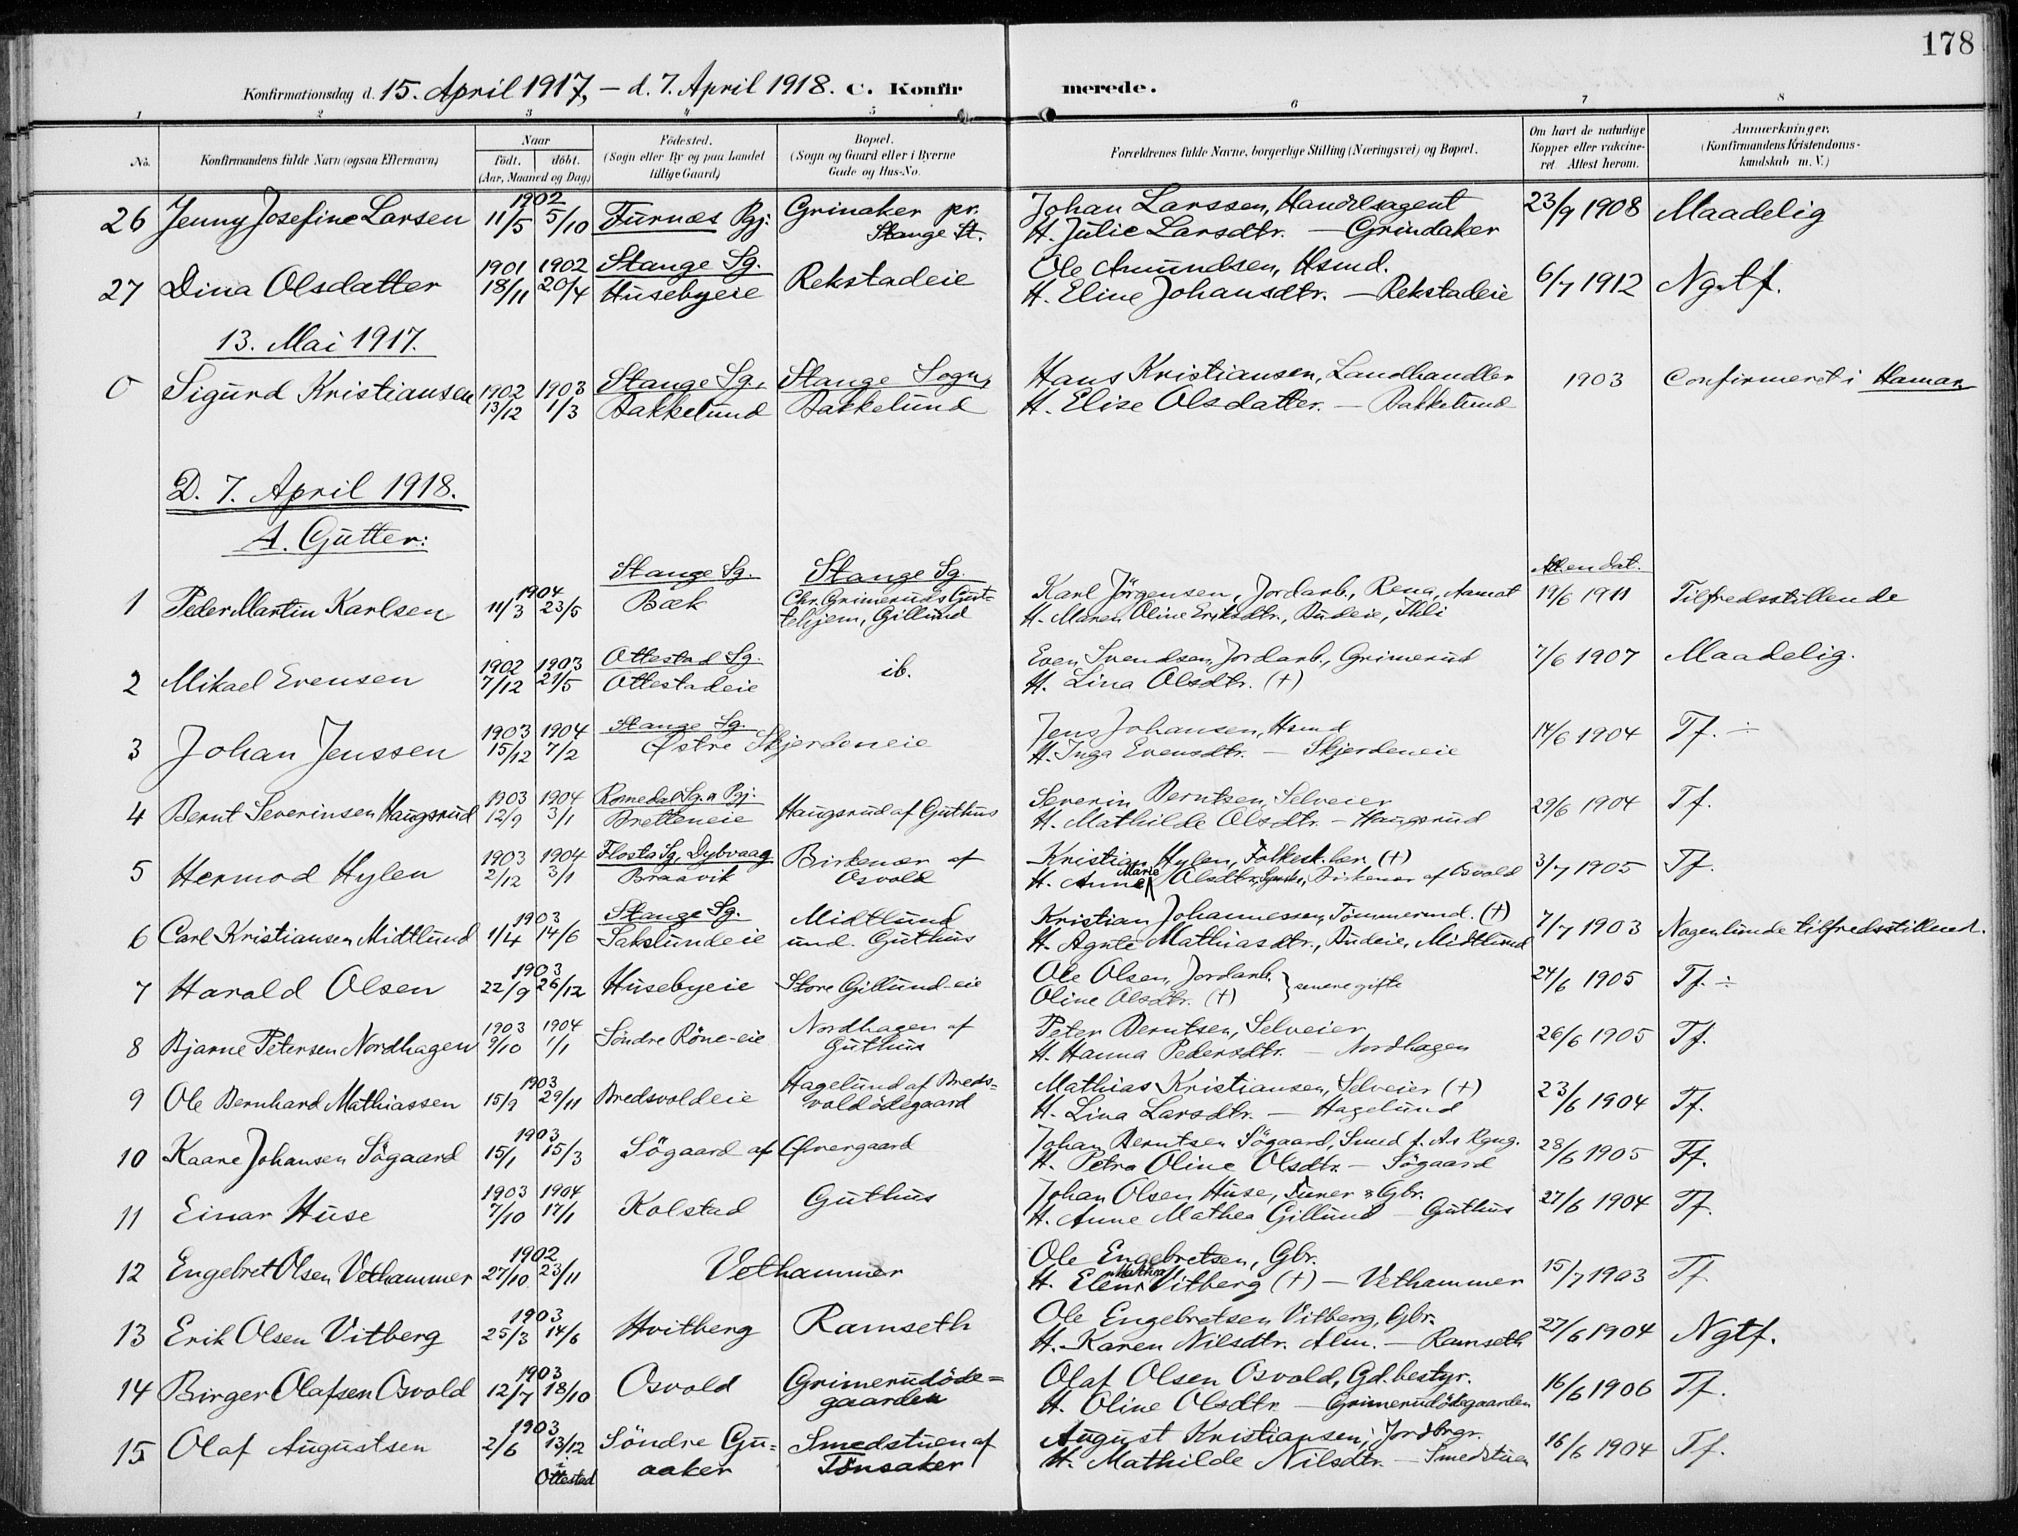 178
Konfirmationsdag d. 15. April 1917, – d. 7. April 1918. C. Konfir merede.
1 2 3 4 5 6 7 8
No. Konfirmandens fulde Navn (ogsaa Efternavn) Naar født. døbt. (Aar, Maaned og Dag) Fødested. (Sogn eller By og paa Landet tillige Gaard) Bopæl. (Sogn og Gaard eller i Byerne Gade og Hus-No. Forældrenes fulde Navne, borgerlige Stilling (Næringsvei) og Bopæl. Om havt de naturlige Kopper eller vakcineret Attest herom. Anmærkninger, (Konfirmandens Kristendomskundskab m. V.)
26 Jenny Josefine Larsen 1902 11/5 5/10 Furnæs Pgj. Grinaker pr. Stange St. Johan Larssen, Handelsagent H. Julie Larsdtr. — Grindaker 23/9 1908 Maadelig
27 Dina Olsdatter 1901 18/11 1902 20/4 Stange Sg. Husebyeie Rekstadeie Ole Amundsen, Hsmd. H. Eline Johansdtr. — Rekstadeie 6/7 1912 Ng.tf.
13. Mai 1917.
0 Sigurd Kristiansen 1902 13/12 1903 1/3 Stange Sg., Bakkelund Stange Sogn, Bakkelund Hans Kristiansen, Landhandler H. Elise Olsdatter. — Bakkelund 1903 Confirmeret i Hamar
D. 7. April 1918.
A. Gutter:
1 Peder Martin Karlsen 1904 11/3 23/5 Stange Sg. Bæk Stange Sg. Chr. Grimeruds Gut-tehjem, Gillund Karl Jörgensen, Jordarb., Rena, Aamot H. Maren Oline Eriksdtr., Budeie, Att. en dat. 19/6 1911 Tilfredsstillende
2 Mikael Evensen 1902 7/12 1903 21/5 Ottestad Sg. Ottestadeie ib. Even Svendsen, Jordarb., Grimerud H. Lina Olsdtr. (+) 7/6 1907 Maadelig.
3 Johan Jenssen 1903 15/12 1904 7/2 Stange Sg. Østre Skjerdeneie Jens Johansen, Hsmd H. Inga Evensdtr. — Skjerdeneie 14/6 1904 Tf. ÷
4 Bernt Severinsen Haugsrud 1903 12/9 1904 3/1 Romedal Sg. o Pgj. Bretteneie Haugsrud af Guthus Severin Berntsen, Selveier H. Mathilde Olsdtr. — Haugsrud 29/6 1904 Tf.
5 Hermod Hylen 1903 2/12 1904 3/1 Flosta Sg, Dybvaag Braavik Birkenær af Osvold Kristian Hylen, Folkesk. lær. (+) H. Anne Marie Olsdtr, Birkenær af Osvold 3/7 1905 Tf.
6 Carl Kristiansen Midtlund 1903 1/4 14/6 Stange Sg. Sakslundeie Midtlund und. Guthus Kristian Johannessen, Tömmermd. (+) H. Agnte Mathiasdtr., Budeie, Midtlund 7/7 1903 Nogenlunde tilfredsstillend.
7 Harald Olsen 1903 22/9 26/12 Husebyeie Store Gillund-eie Ole Olsen, Jordarb. Oline Olsdtr. (+) } senere gifte 24/6 1905 Tf. ÷
8 Bjarne Petersen Nordhagen 1903 9/10 1904 1/1 Söndre Röne-eie Nordhagen af Guthus Peter Berntsen, Selveier H. Hanna Pedersdtr. — Nordhagen 26/6 1905 Tf.
9 Ole Bernhard Mathiassen 1903 15/9 29/11 Bredsvoldeie Hagelund af Breds=voldödegaard Mathias Kristiansen, Selveier (+) H. Lina Larsdtr. — Hagelund 23/6 1904 Tf.
10 Kaare Johansen Sögaard 1903 15/1 15/3 Sögaard af Ofvergaard Johan Berntsen Sögaard, Smed H. Petra Oline Olsdtr. — Sögaard 28/6 1905 Tf.
11 Einar Huse 1903 7/10 1904 17/1 Kolstad Guthus Johan Olsen Huse, Gbr. H. Anne Mathea Gillund — Guthus 27/6 1904 Tf.
12 Engebret Olsen Vethammer 1902 27/10 23/11 Vethammer Ole Engebretsen, Gbr. H. Eleni Mathea Vitberg (+) — Vethammer 15/7 1903 Tf.
13 Erik Olsen Vitberg 1903 25/3 14/6 Hvitberg Ramseth Ole Engebretsen Vitberg, Gbr. H. Karen Nilsdtr. Alm. — Ramseth 27/6 1904 Ngtf.
14 Birger Olafsen Osvold 1903 12/7 18/10 Osvold Grimerudöde=gaarden Olaf Olsen Osvold, Gd. bestyr. H. Oline Olsdtr. — Grimerudödegaarden 16/6 1906 Tf.
15 Olaf Augustsen 1903 2/6 13/12 i Ottestad Söndre Gu=aaker Smedstuen af Tönsaker August Kristiansen, Jordbrgr. H. Mathilde Nilsdtr. — Smedstuen 16/6 1904 Tf.